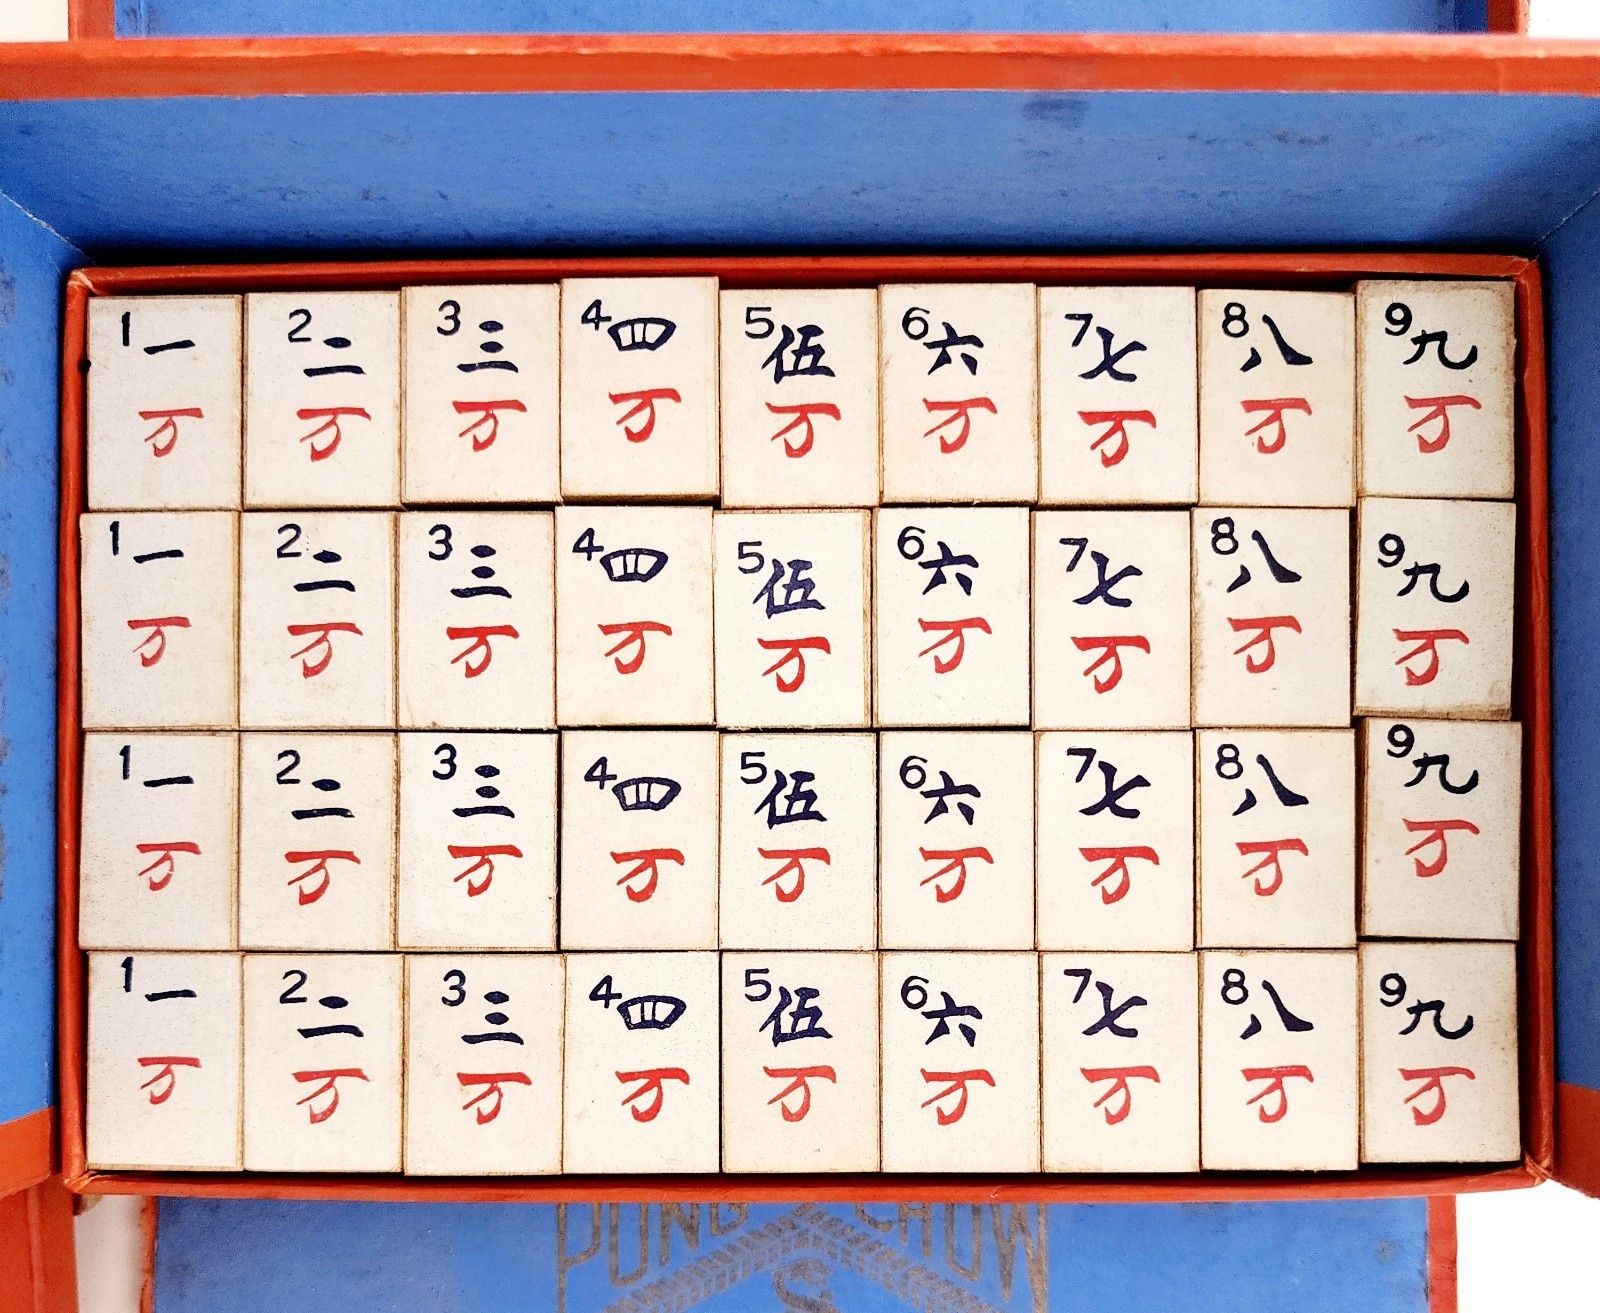 1 一 2 二 3 三 4 四 5 伍 6 六 7 七 8 八 9 九
万 万 万 万 万 万 万 万 万
1 一 2 二 3 三 4 四 5 伍 6 六 7 七 8 八 9 九
万 万 万 万 万 万 万 万 万
1 一 2 二 3 三 4 四 5 伍 6 六 7 七 8 八 9 九
万 万 万 万 万 万 万 万 万
1 一 2 二 3 三 4 四 5 伍 6 六 7 七 8 八 9 九
万 万 万 万 万 万 万 万 万
PUNG CHOW